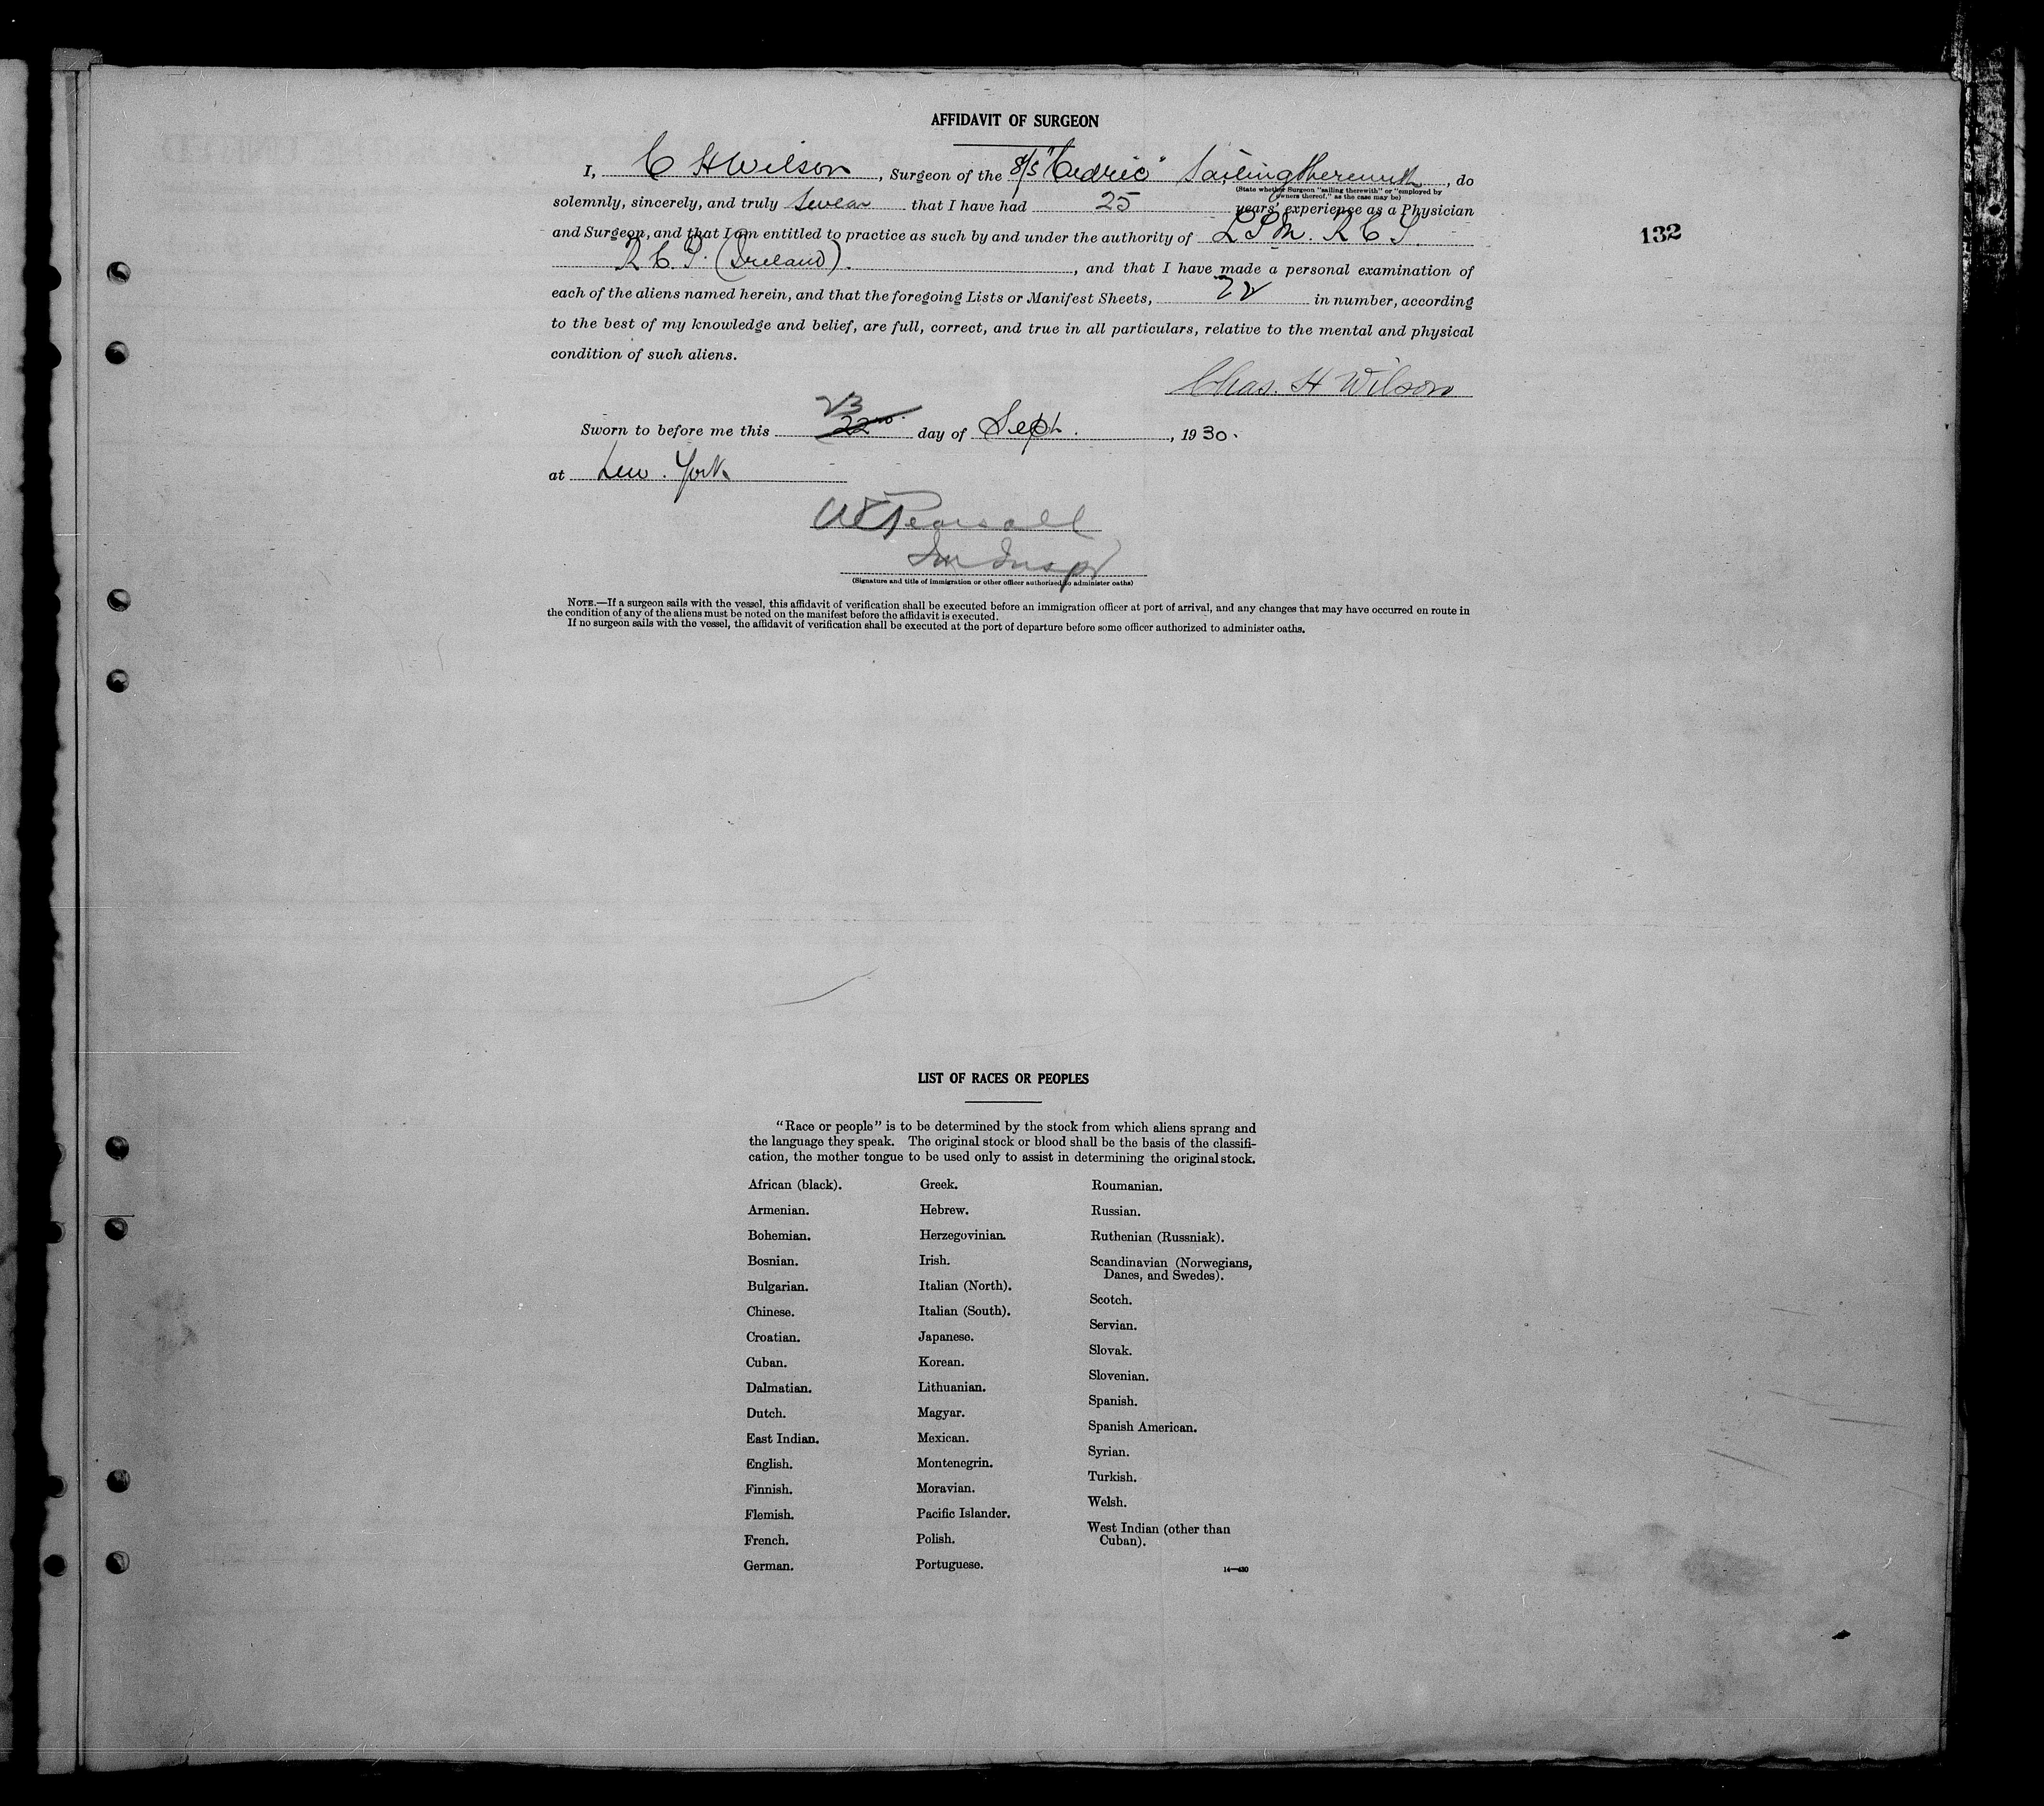 AFFIDAVIT OF SURGEON
I, C H Wilson, Surgeon of the S/S "Cedric" Sailing therewith, do
(State whether Surgeon "sailing therewith" or "employed by
owners thereof," as the case may be)
solemnly, sincerely, and truly swear that I have had 25 years' experience as a Physician
and Surgeon, and that I am entitled to practice as such by and under the authority of R C S.
R C P. (Ireland)., and that I have made a personal examination of
132
each of the aliens named herein, and that the foregoing Lists or Manifest Sheets, in number, according
to the best of my knowledge and belief, are full, correct, and true in all particulars, relative to the mental and physical
condition of such aliens.
Chas. H Wilson
23
Sworn to before me this 22nd day of Sept., 1930.
at New York
Pearsall
Im Inspr
(Signature and title of immigration or other officer authorized to administer oaths)
NOTE.—If a surgeon sails with the vessel, this affidavit of verification shall be executed before an immigration officer at port of arrival, and any changes that may have occurred en route in
the condition of any of the aliens must be noted on the manifest before the affidavit is executed.
If no surgeon sails with the vessel, the affidavit of verification shall be executed at the port of departure before some officer authorized to administer oaths.
LIST OF RACES OR PEOPLES
"Race or people" is to be determined by the stock from which aliens sprang and
the language they speak. The original stock or blood shall be the basis of the classifi-
cation, the mother tongue to be used only to assist in determining the original stock.
African (black).
Armenian.
Bohemian.
Bosnian.
Bulgarian.
Chinese.
Croatian.
Cuban.
Dalmatian.
Dutch.
East Indian.
English.
Finnish.
Flemish.
French.
German.
Greek.
Hebrew.
Herzegovinian.
Irish.
Italian (North).
Italian (South).
Japanese.
Korean.
Lithuanian.
Magyar.
Mexican.
Montenegrin.
Moravian.
Pacific Islander.
Polish.
Portuguese.
Roumanian.
Russian.
Ruthenian (Russniak).
Scandinavian (Norwegians,
Danes, and Swedes).
Scotch.
Servian.
Slovak.
Slovenian.
Spanish.
Spanish American.
Syrian.
Turkish.
Welsh.
West Indian (other than
Cuban).
14—430